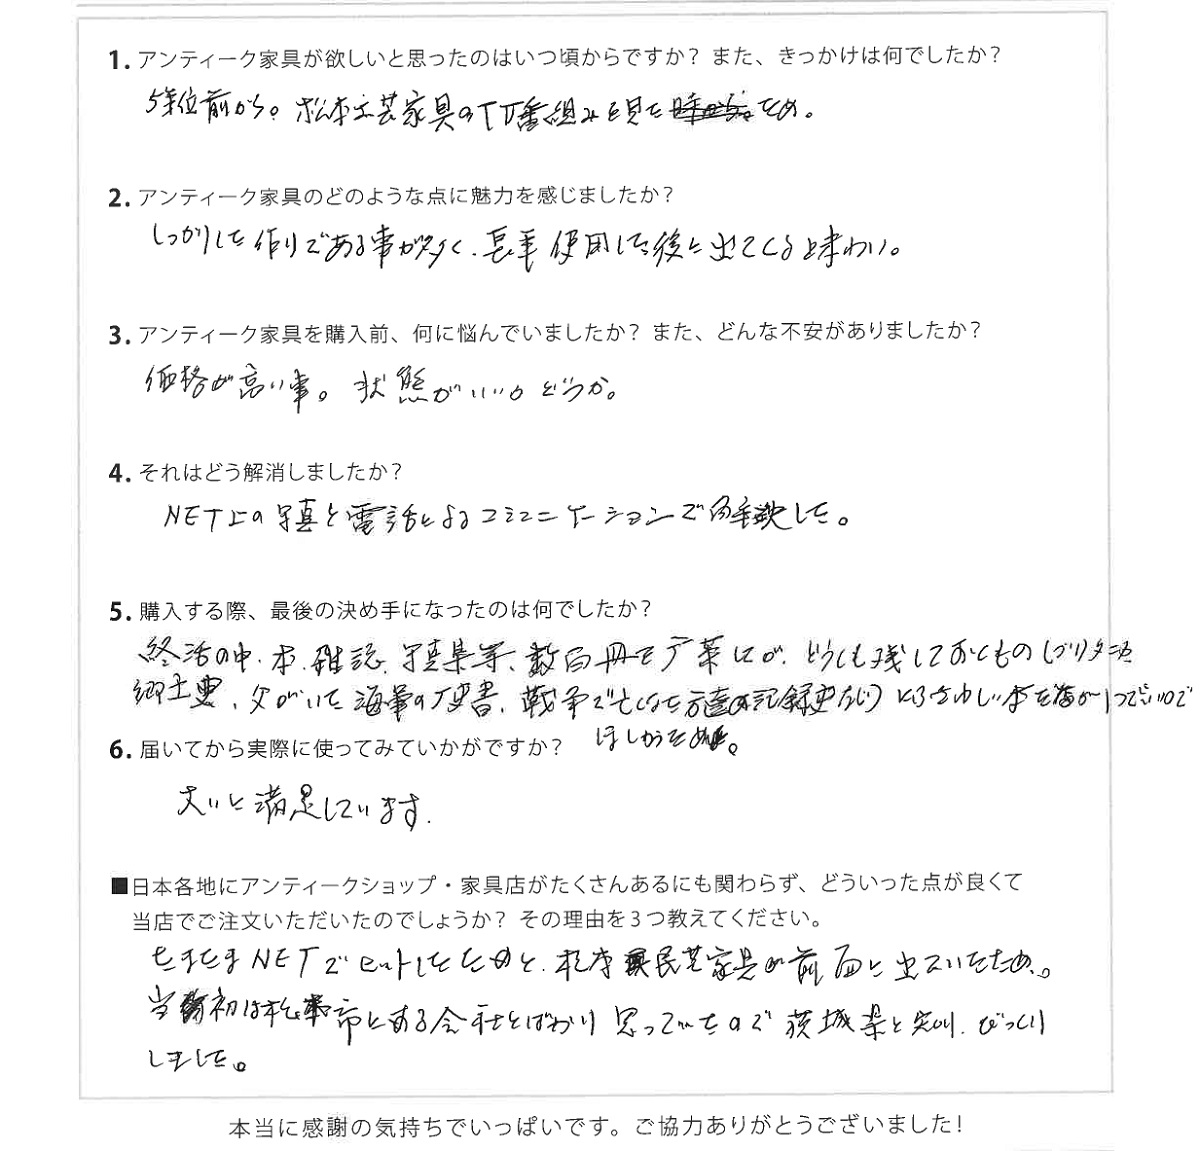 1. アンティーク家具が欲しいと思ったのはいつ頃からですか? また、きっかけは何でしたか?
5年位前から。松本工芸家具のTV番組みを見たため。
2. アンティーク家具のどのような点に魅力を感じましたか?
しっかりした作りである事が多く、長年使用した後に出てくる味わい。
3. アンティーク家具を購入前、何に悩んでいましたか? また、どんな不安がありましたか?
価格が高い事。状態がいいのかどうか。
4. それはどう解消しましたか?
NET上の写真と電話によるコミュニケーションで解決した。
5. 購入する際、最後の決め手になったのは何でしたか?
終活の中、本、雑誌、写真集等、数百冊も戸棄したが、どうしても残しておくもの(ブリタニカ
郷土史、父がいた海軍の 書、戦争で亡くなった方達の記録史など)にふさわしい本
ほしかったため。
6. 届いてから実際に使ってみていかがですか?
大いに満足しています.
■日本各地にアンティークショップ・家具店がたくさんあるにも関わらず、どういった点が良くて
当店でご注文いただいたのでしょうか? その理由を3つ教えてください。
たまたまNETでヒットしたためと、松本民芸家具が前面に出ていたため。
当初は松本市にある会社とばかり思っていたので茨城県と知り、びっくり
しました。
本当に感謝の気持ちでいっぱいです。ご協力ありがとうございました!